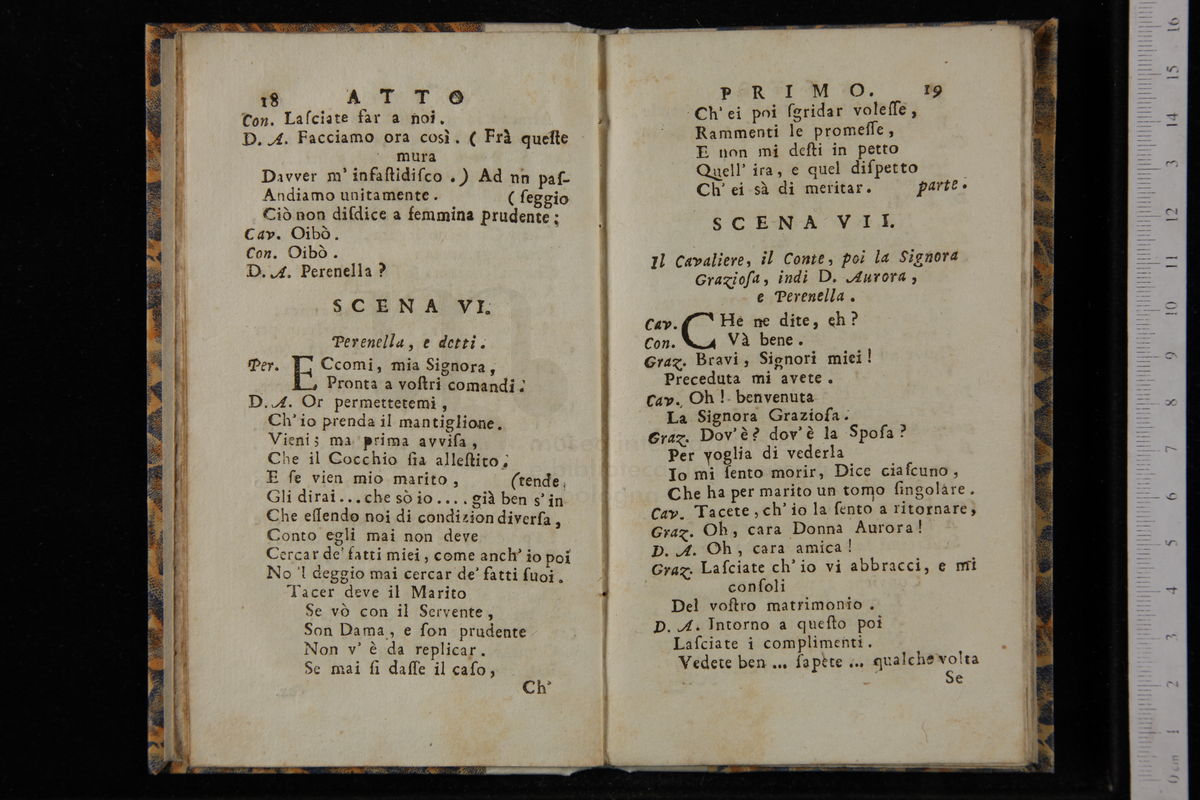 18 ATTO
Con. Laſciate far a noi.
D. A. Facciamo ora così. ( Frà queſte
mura
Davver m' infaſtidiſco .) Ad un paſ-
Andiamo unitamente. ( ſeggio
Ciò non diſdice a femmina prudente;
Cav. Oibò.
Con. Oibò.
D. A. Perenella?
SCENA VI.
Perenella, e detti.
Per. ECcomi, mia Signora,
Pronta a voſtri comandi.
D. A. Or permettetemi,
Ch' io prenda il mantiglione.
Vieni; ma prima avviſa,
Che il Cocchio ſia alleſtito.
E ſe vien mio marito, (tende,
Gli dirai... che sò io.... già ben s' in
Che eſſendo noi di condizion diverſa,
Conto egli mai non deve
Cercar de' fatti miei, come anch' io poi
No 'l deggio mai cercar de' fatti ſuoi.
Tacer deve il Marito
Se vò con il Servente,
Son Dama, e ſon prudente
Non v' è da replicar.
Se mai ſi daſſe il caſo,
Ch'
PRIMO. 19
Ch' ei poi ſgridar voleſſe,
Rammenti le promeſſe,
E non mi deſti in petto
Quell' ira, e quel diſpetto
Ch' ei sà di meritar. parte.
SCENA VII.
Il Cavaliere, il Conte, poi la Signora
Grazioſa, indi D. Aurora,
e Perenella.
Cav. CHe ne dite, eh?
Con. Và bene.
Graz. Bravi, Signori miei!
Preceduta mi avete.
Cav. Oh! benvenuta
La Signora Grazioſa.
Graz. Dov' è? dov' è la Spoſa?
Per voglia di vederla
Io mi ſento morir, Dice ciaſcuno,
Che ha per marito un tomo ſingolare.
Cav. Tacete, ch' io la ſento a ritornare,
Graz. Oh, cara Donna Aurora!
D. A. Oh, cara amica!
Graz. Laſciate ch' io vi abbracci, e mi
conſoli
Del voſtro matrimonio.
D. A. Intorno a queſto poi
Laſciate i complimenti.
Vedete ben ... ſapete ... qualche volta
Se
0 cm 1 2 3 4 5 6 7 8 9 10 11 12 13 14 15 16